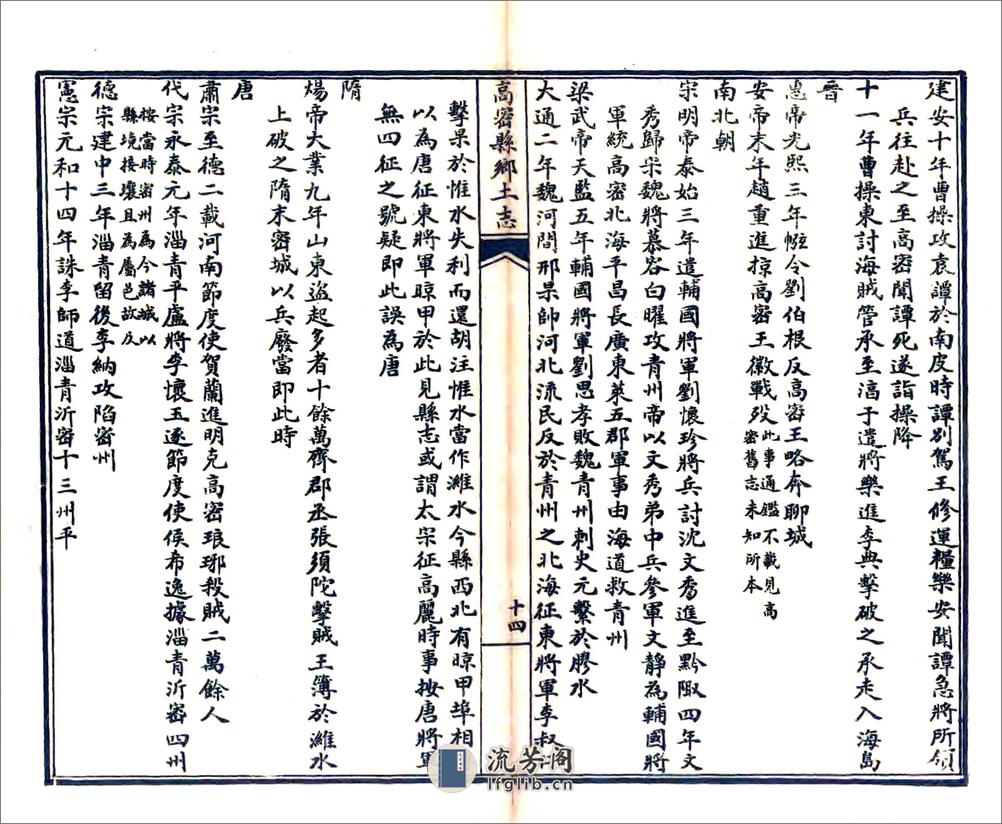 建安十年曹操攻袁譚於南皮時譚別駕王修運糧樂安聞譚急將所領
兵往赴之至高密聞譚死遂詣操降
十一年曹操東討海賊管承至淳于遣將樂進李典擊破之承走入海島
晉
惠帝光熙三年㡉令劉伯根反高密王略奔聊城
安帝末年趙重進掠高密王徽戰歿此事通鑑不載見高
密舊志未知所本
南北朝
宋明帝泰始三年遣輔國將軍劉懷珍將兵討沈文秀進至黔陬四年文
秀歸宋魏將慕容白曜攻青州帝以文秀弟中兵參軍文靜為輔國將
軍統高密北海平昌長廣東萊五郡軍事由海道救青州
梁武帝天監五年輔國將軍劉思孝敗魏青州刺史元繫於膠水
大通二年魏河間邢杲帥河北流民反於青州之北海征東將軍李叔
高密縣鄉土志
十四
擊杲於惟水失利而還胡注惟水當作濰水今縣西北有晾甲埠相
以為唐征東將軍晾甲於此見縣志或謂太宗征高麗時事按唐將軍
無四征之號疑即此誤為唐
隋
煬帝大業九年山東盜起多者十餘萬齊郡丞張須陀擊賊王簿於濰水
上破之隋末密城以兵廢當即此時
唐
肅宗至德二載河南節度使賀蘭進明克高密琅琊殺賊二萬餘人
代宗永泰元年淄青平盧將李懷玉逐節度使侯希逸據淄青沂密四州
按當時密州為今諸城以
縣境接壤且為屬邑故及
德宗建中三年淄青留後李納攻陷密州
憲宗元和十四年誅李師道淄青沂密十三州平
流芳阁
lfglib.cn